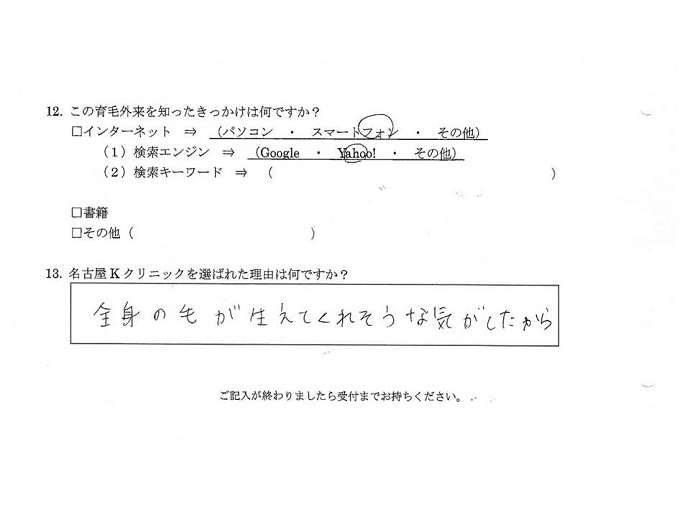 12. この育毛外来を知ったきっかけは何ですか？
□インターネット ⇒ （パソコン ・ スマートフォン ・ その他）
（1）検索エンジン ⇒ （Google ・ Yahoo! ・ その他）
（2）検索キーワード ⇒ （ ）
□書籍
□その他（ ）
13. 名古屋Kクリニックを選ばれた理由は何ですか？
全身の毛が生えてくれそうな気がしたから
ご記入が終わりましたら受付までお持ちください。